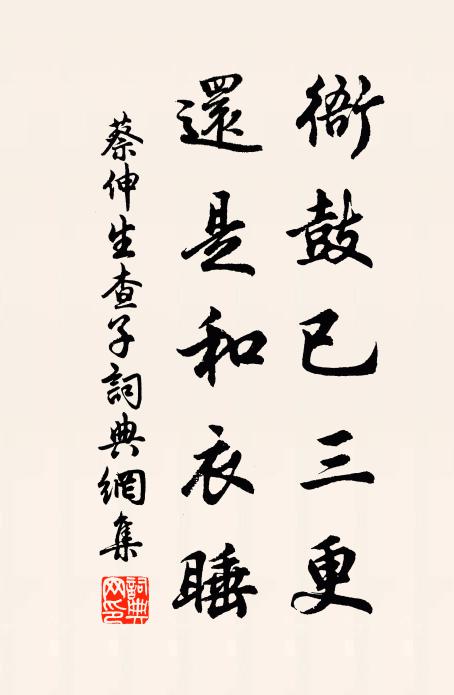 衙鼓已三更
還是和衣睡
蔡伸生查子詞典網集
詞典网印